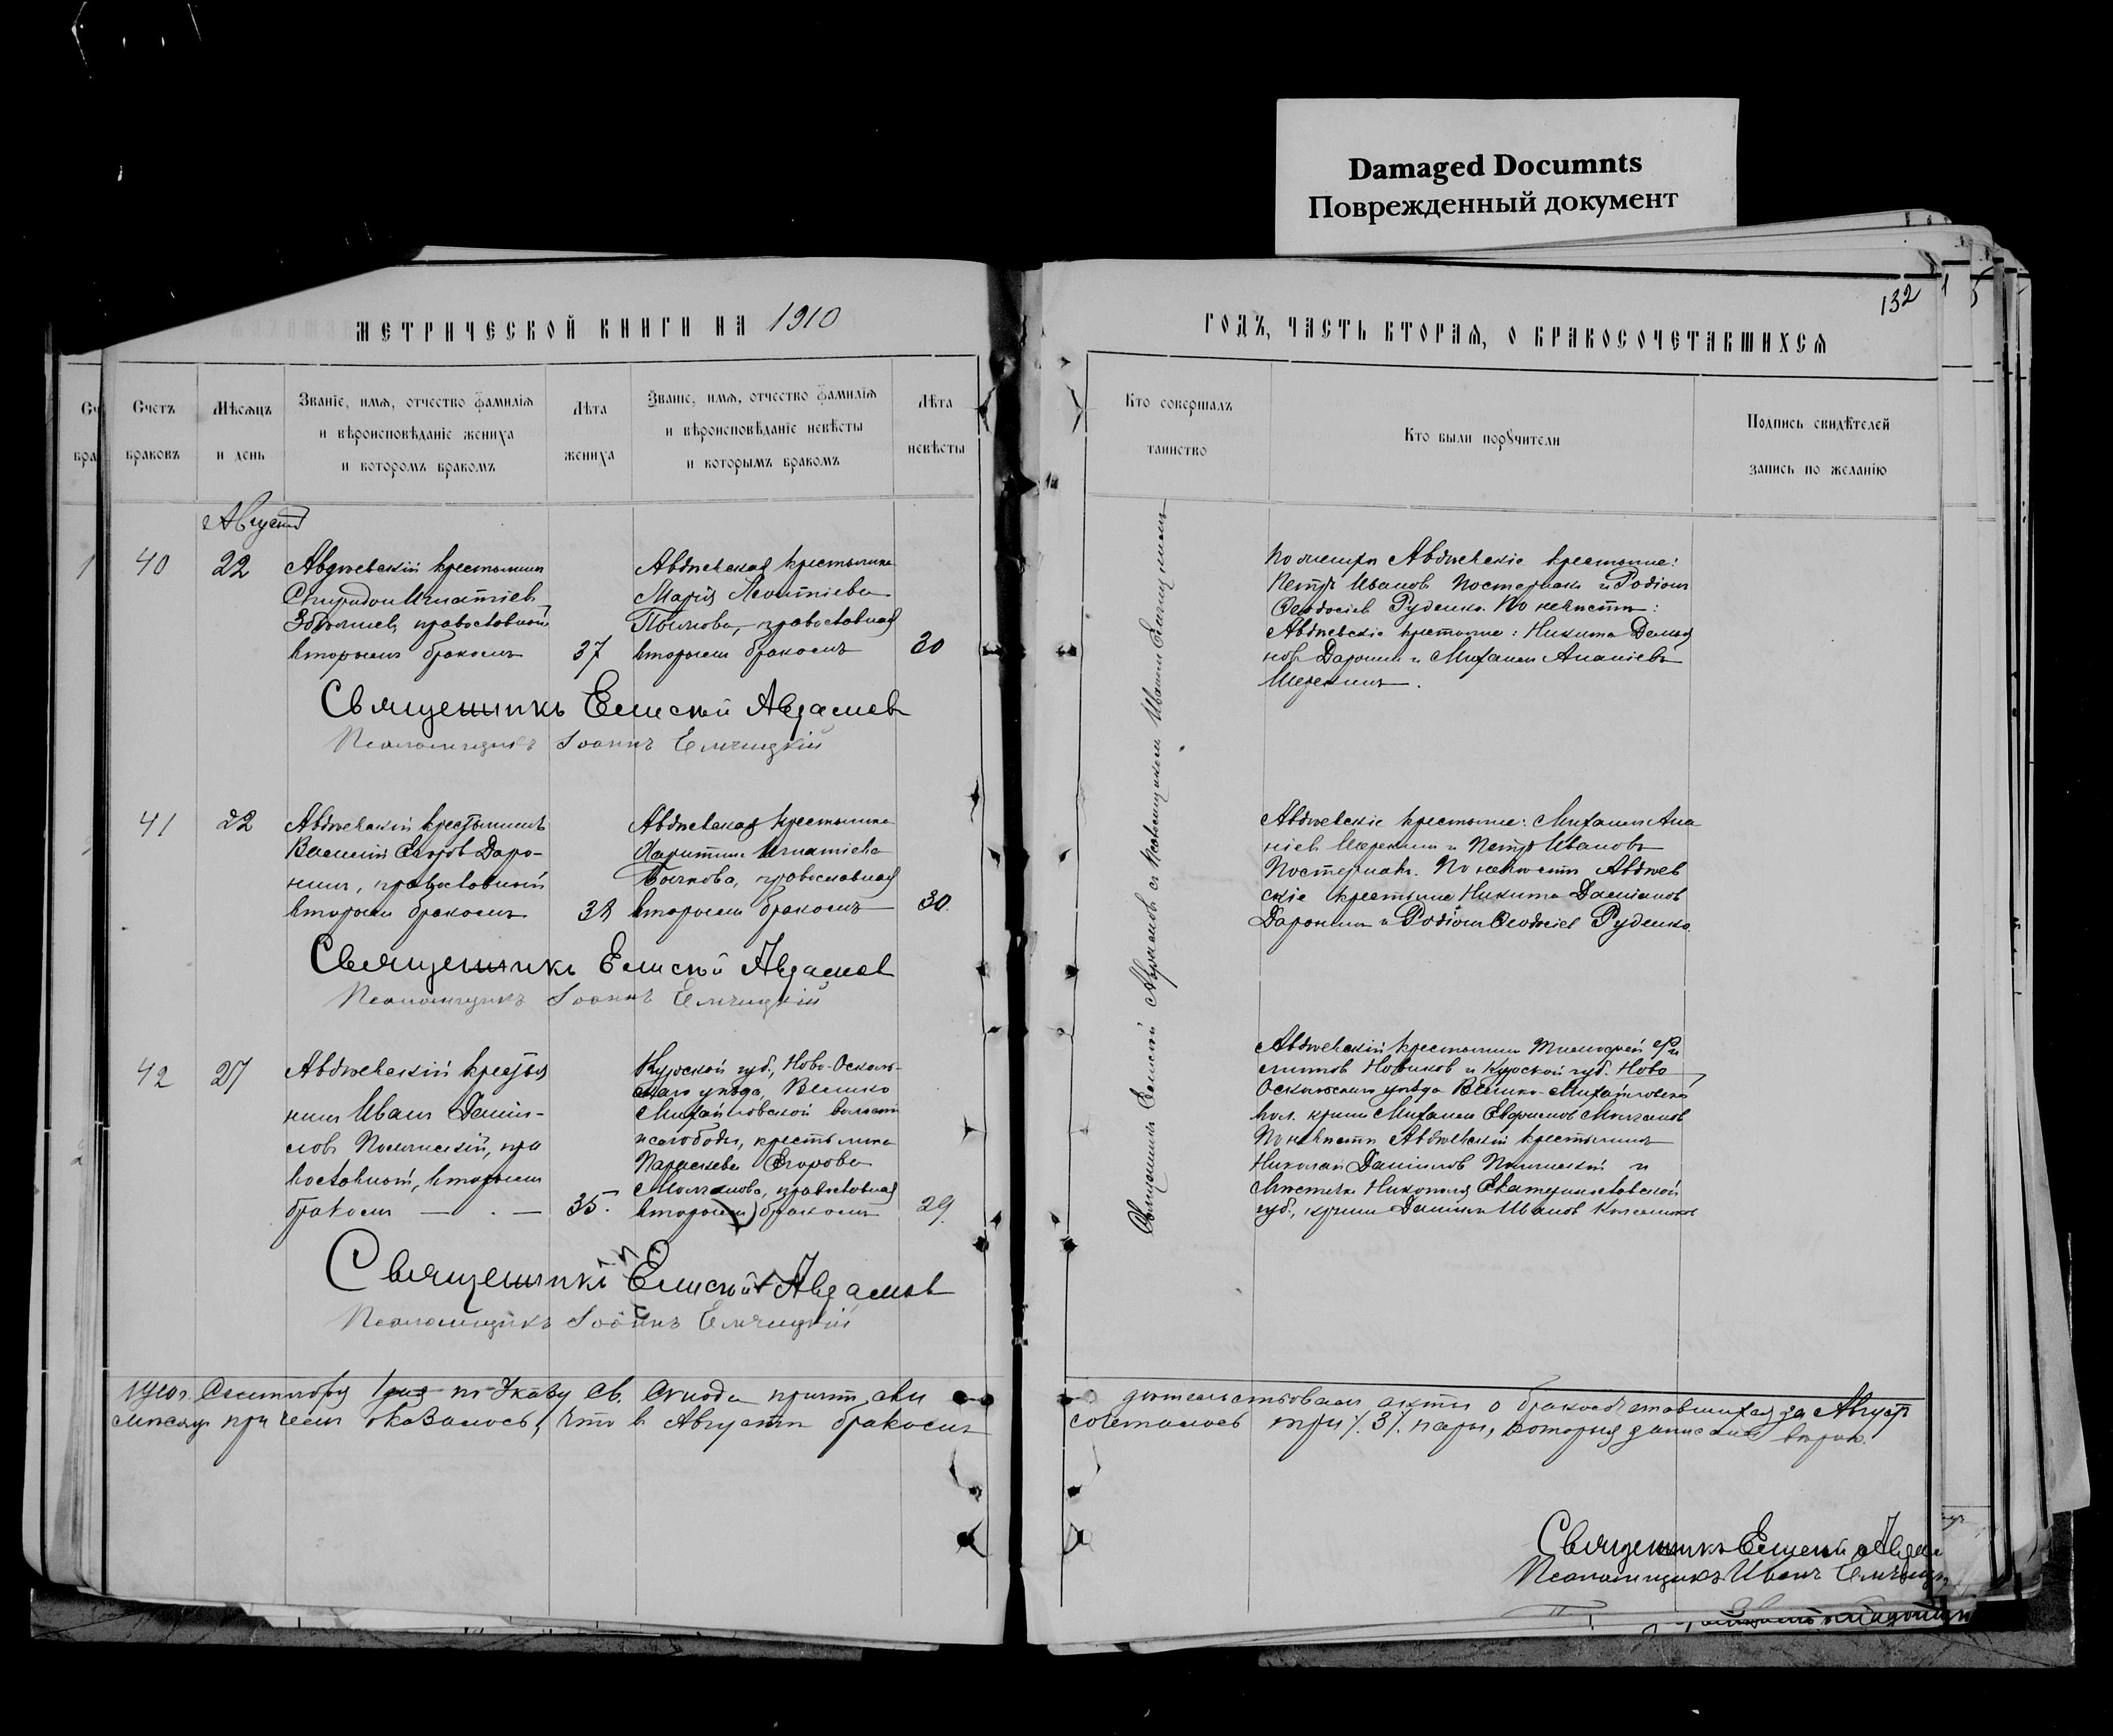 Damaged Documnts
Поврежденный документ
132
МЕТРИЧЕСКОЙ КНИГИ НА 1910
ГОДЪ, ЧАСТЬ ВТОРАЯ, О БРАКОСОЧЕТАВШИХСЯ
Счетъ
браковъ
Мѣсяцъ
и день
Званіе, имя, отчество фамилія
и вѣроисповѣданіе жениха
и которомъ бракомъ
Лѣта
жениха
Званіе, имя, отчество фамилія
и вѣроисповѣданіе невѣсты
и которымъ бракомъ
Лѣта
невѣсты
Кто совершалъ
таинство
Кто были поручители
Подпись свидѣтелей
запись по желанію
Августъ
40
22
Авдѣевскій крестьянинъ
Спиридонъ Игнатіевъ
православный
вторымъ бракомъ
37
Авдѣевская крестьянка
Марія Леонтіева
православная
вторымъ бракомъ
30
По женихѣ Авдѣевскіе крестьяне:
Петръ Ивановъ Постернакъ и Родіонъ
Ѳеодосіевъ Руденко. По невѣстѣ:
Авдѣевскіе крестьяне: Никита Демья
новъ Даронинъ и Михаилъ Ананіевъ
Священникъ Елисей Авраамовъ
Псаломщикъ Іоаннъ Елчицкій
41
22
Авдѣевскій крестьянинъ
Василій Егоровъ Даро-
нинъ, православный
вторымъ бракомъ
38
Авдѣевская крестьянка
Харитина Игнатіева
Бычкова, православная
вторымъ бракомъ
30.
Авдѣевскіе крестьяне: Михаилъ Ана
ніевъ и Петръ Ивановъ
Постернакъ. По невѣстѣ Авдѣев
скіе крестьяне Никита Даміановъ
Даронинъ и Родіонъ Ѳеодосіевъ Руденко.
Священникъ Елисей Авраамовъ
Псаломщикъ Іоаннъ Елчицкій
42
27
Авдѣевскій крестья
нинъ Иванъ Дани-
ловъ пра
вославный, вторымъ
бракомъ
35.
Курской губ., Ново-Осколь-
скаго уѣзда, Велико
Михайловской волости
и слободы, крестьянка
Параскева Егорова
Молчанова, православная
вторымъ бракомъ
29.
Авдѣевскій крестьянинъ Тимофей Фи
липповъ Новиковъ и Курской губ. Ново
Оскольскаго уѣзда Велико-Михайловской
вол. крест. Михаилъ Молчановъ
По невѣстѣ Авдѣевскій крестьянинъ
Николай Даниловъ и
мѣстечка Никополя Екатеринославской
губ., крест. Даниилъ Ивановъ
Священникъ Елисей Авраамовъ
Псаломщикъ Іоаннъ Елчицкій
Священникъ Елисей Авраамовъ съ псаломщикомъ Иваномъ Елчицкимъ
1910 г. Сентября 1 дня по Указу Св. Синода причт сви
дѣтельствовалъ акты о бракосочетавшихся за Августъ
мѣсяцъ при чемъ оказалось, что в Августѣ бракомъ
сочеталось три /.3/. пары, которыя записаны вѣрно.
Священникъ Елисей
Псаломщикъ Иванъ